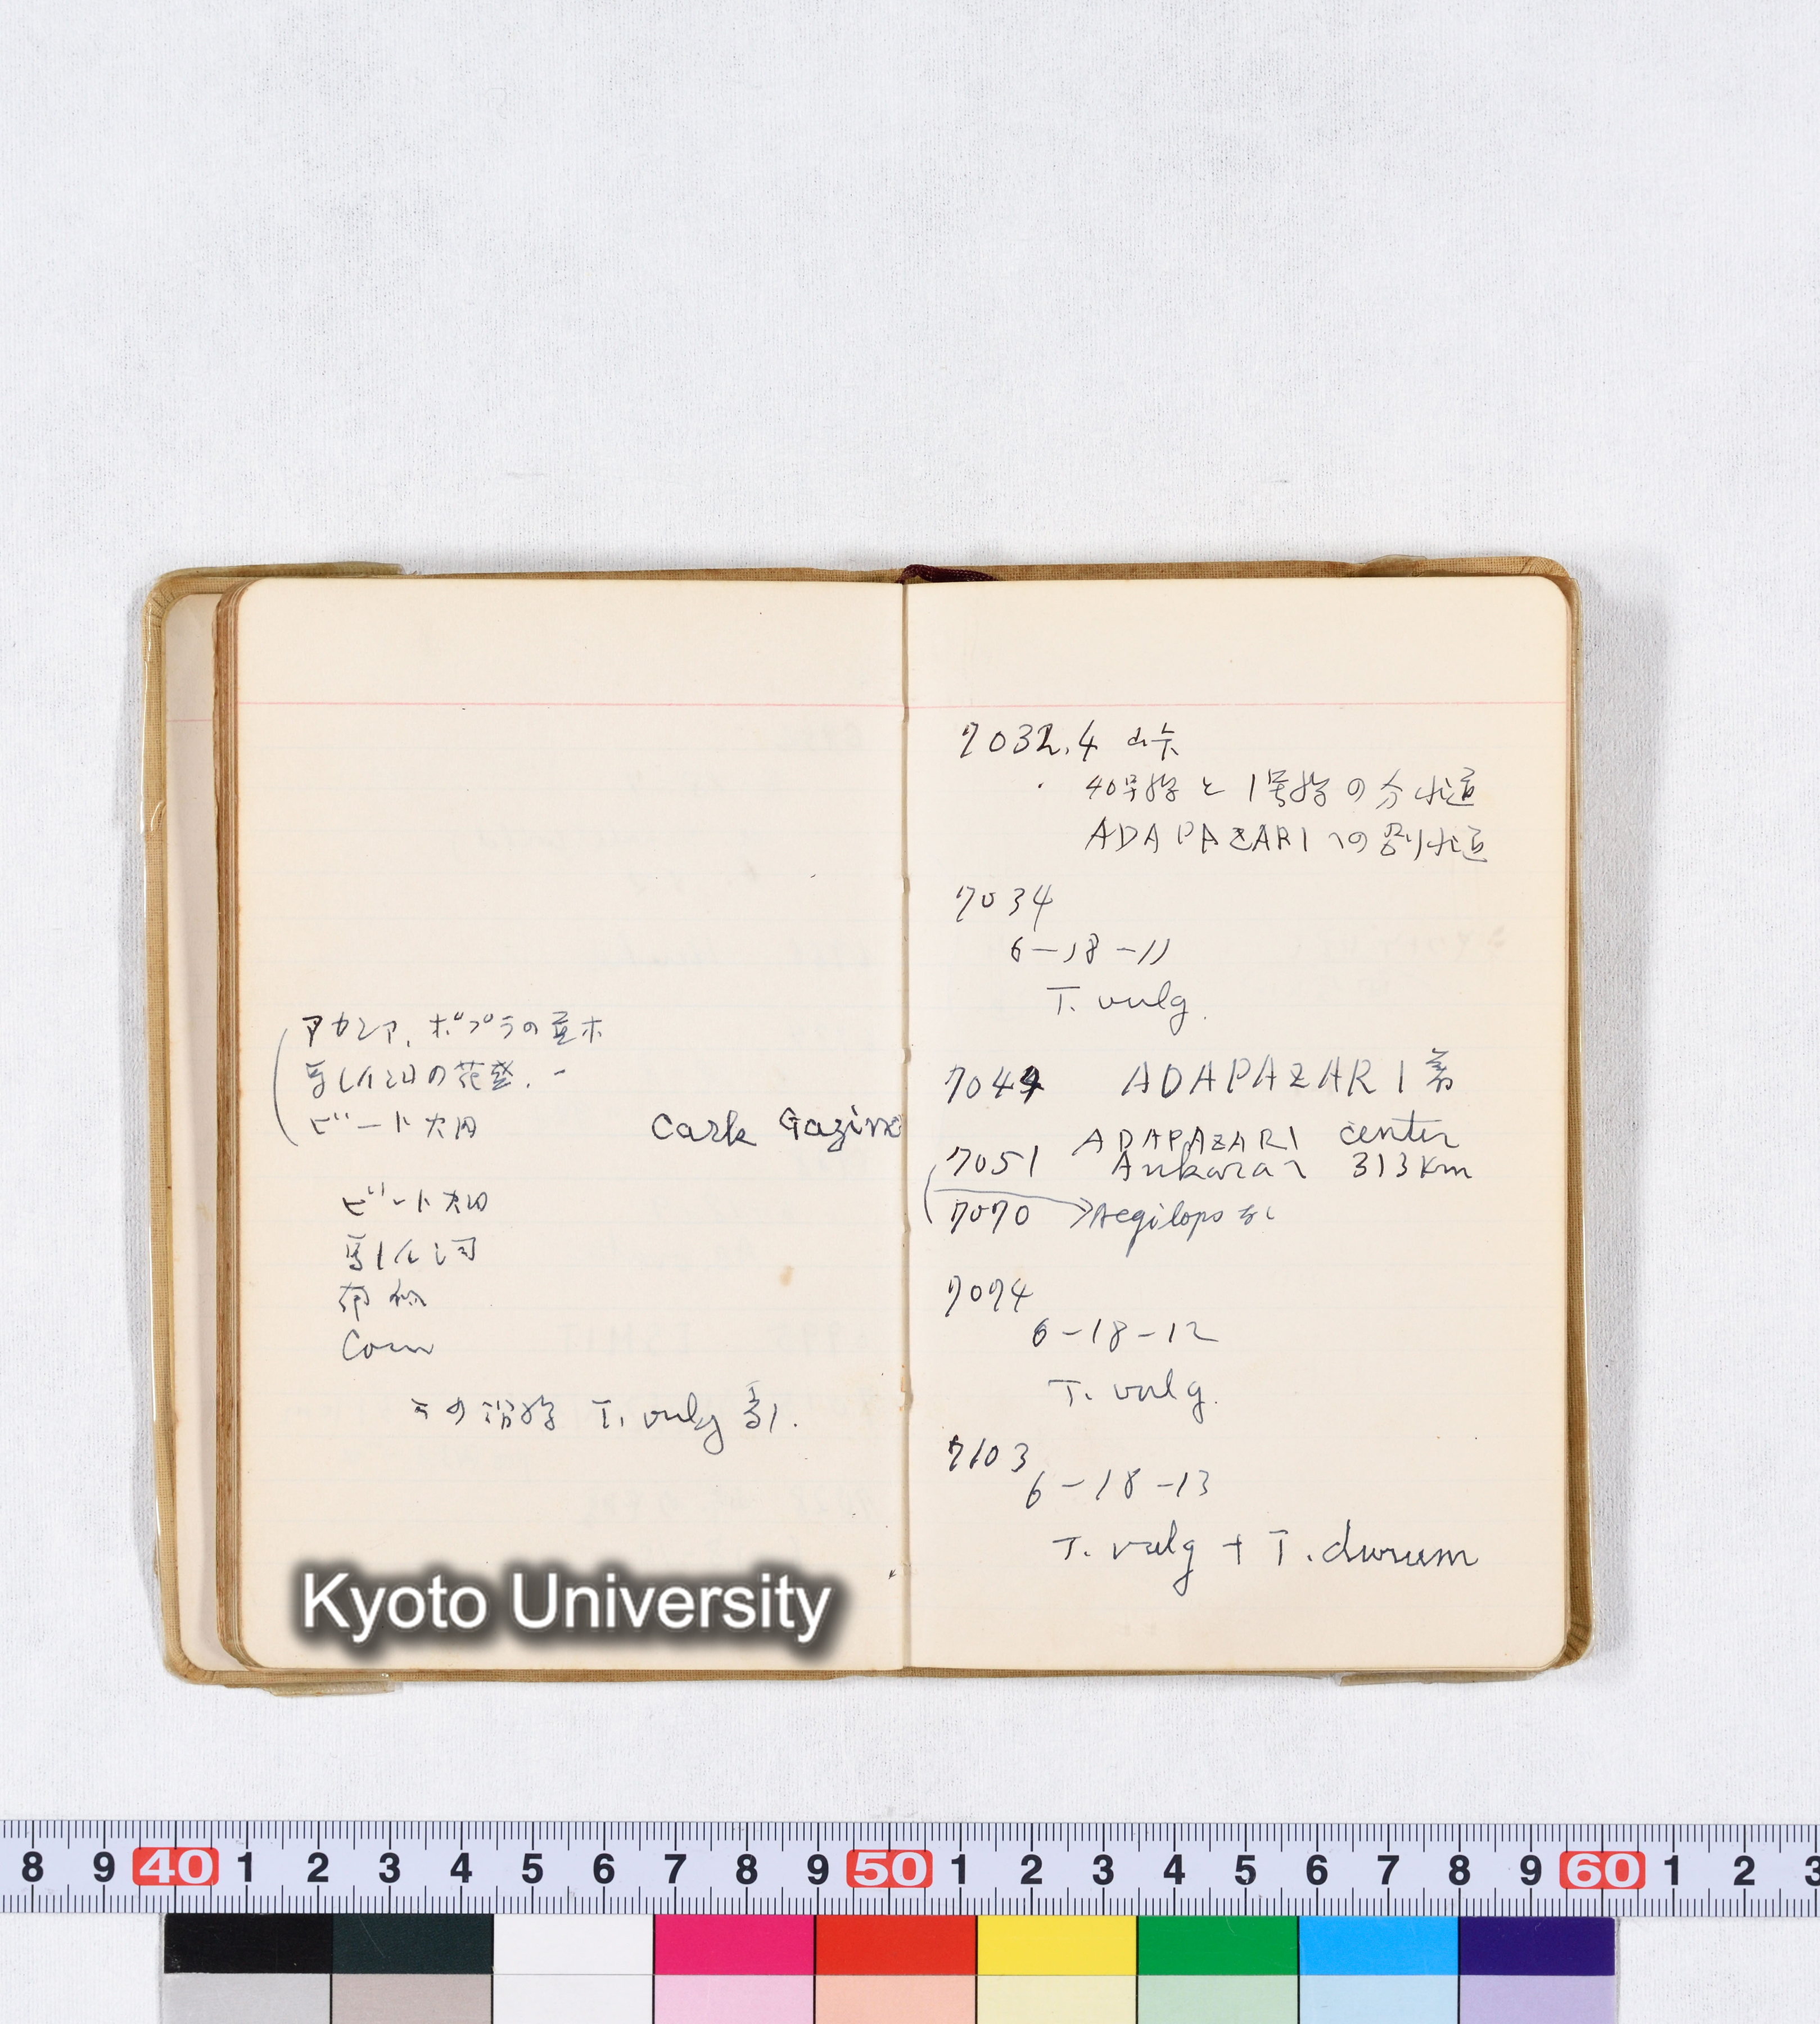 アカシア、ポプラの並木
馬レイ薯の花盛.
ビート大田
Cark Gazino
ビート大田
馬レイ薯
葡萄
Corn
この沿線 T. vulg 多し.
7032.4
40号線と1号線の分れ道
ADAPAZARIへの別れ道
7034
6-18-11
T. vulg.
7044 ADAPAZARI着
ADAPAZARI center
7051 Ankaraへ 313Km
7070 Aegilops なし
7074
6-18-12
T. vulg.
7103
6-18-13
T. vulg + T. durum
Kyoto University
8 9 40 1 2 3 4 5 6 7 8 9 50 1 2 3 4 5 6 7 8 9 60 1 2 3